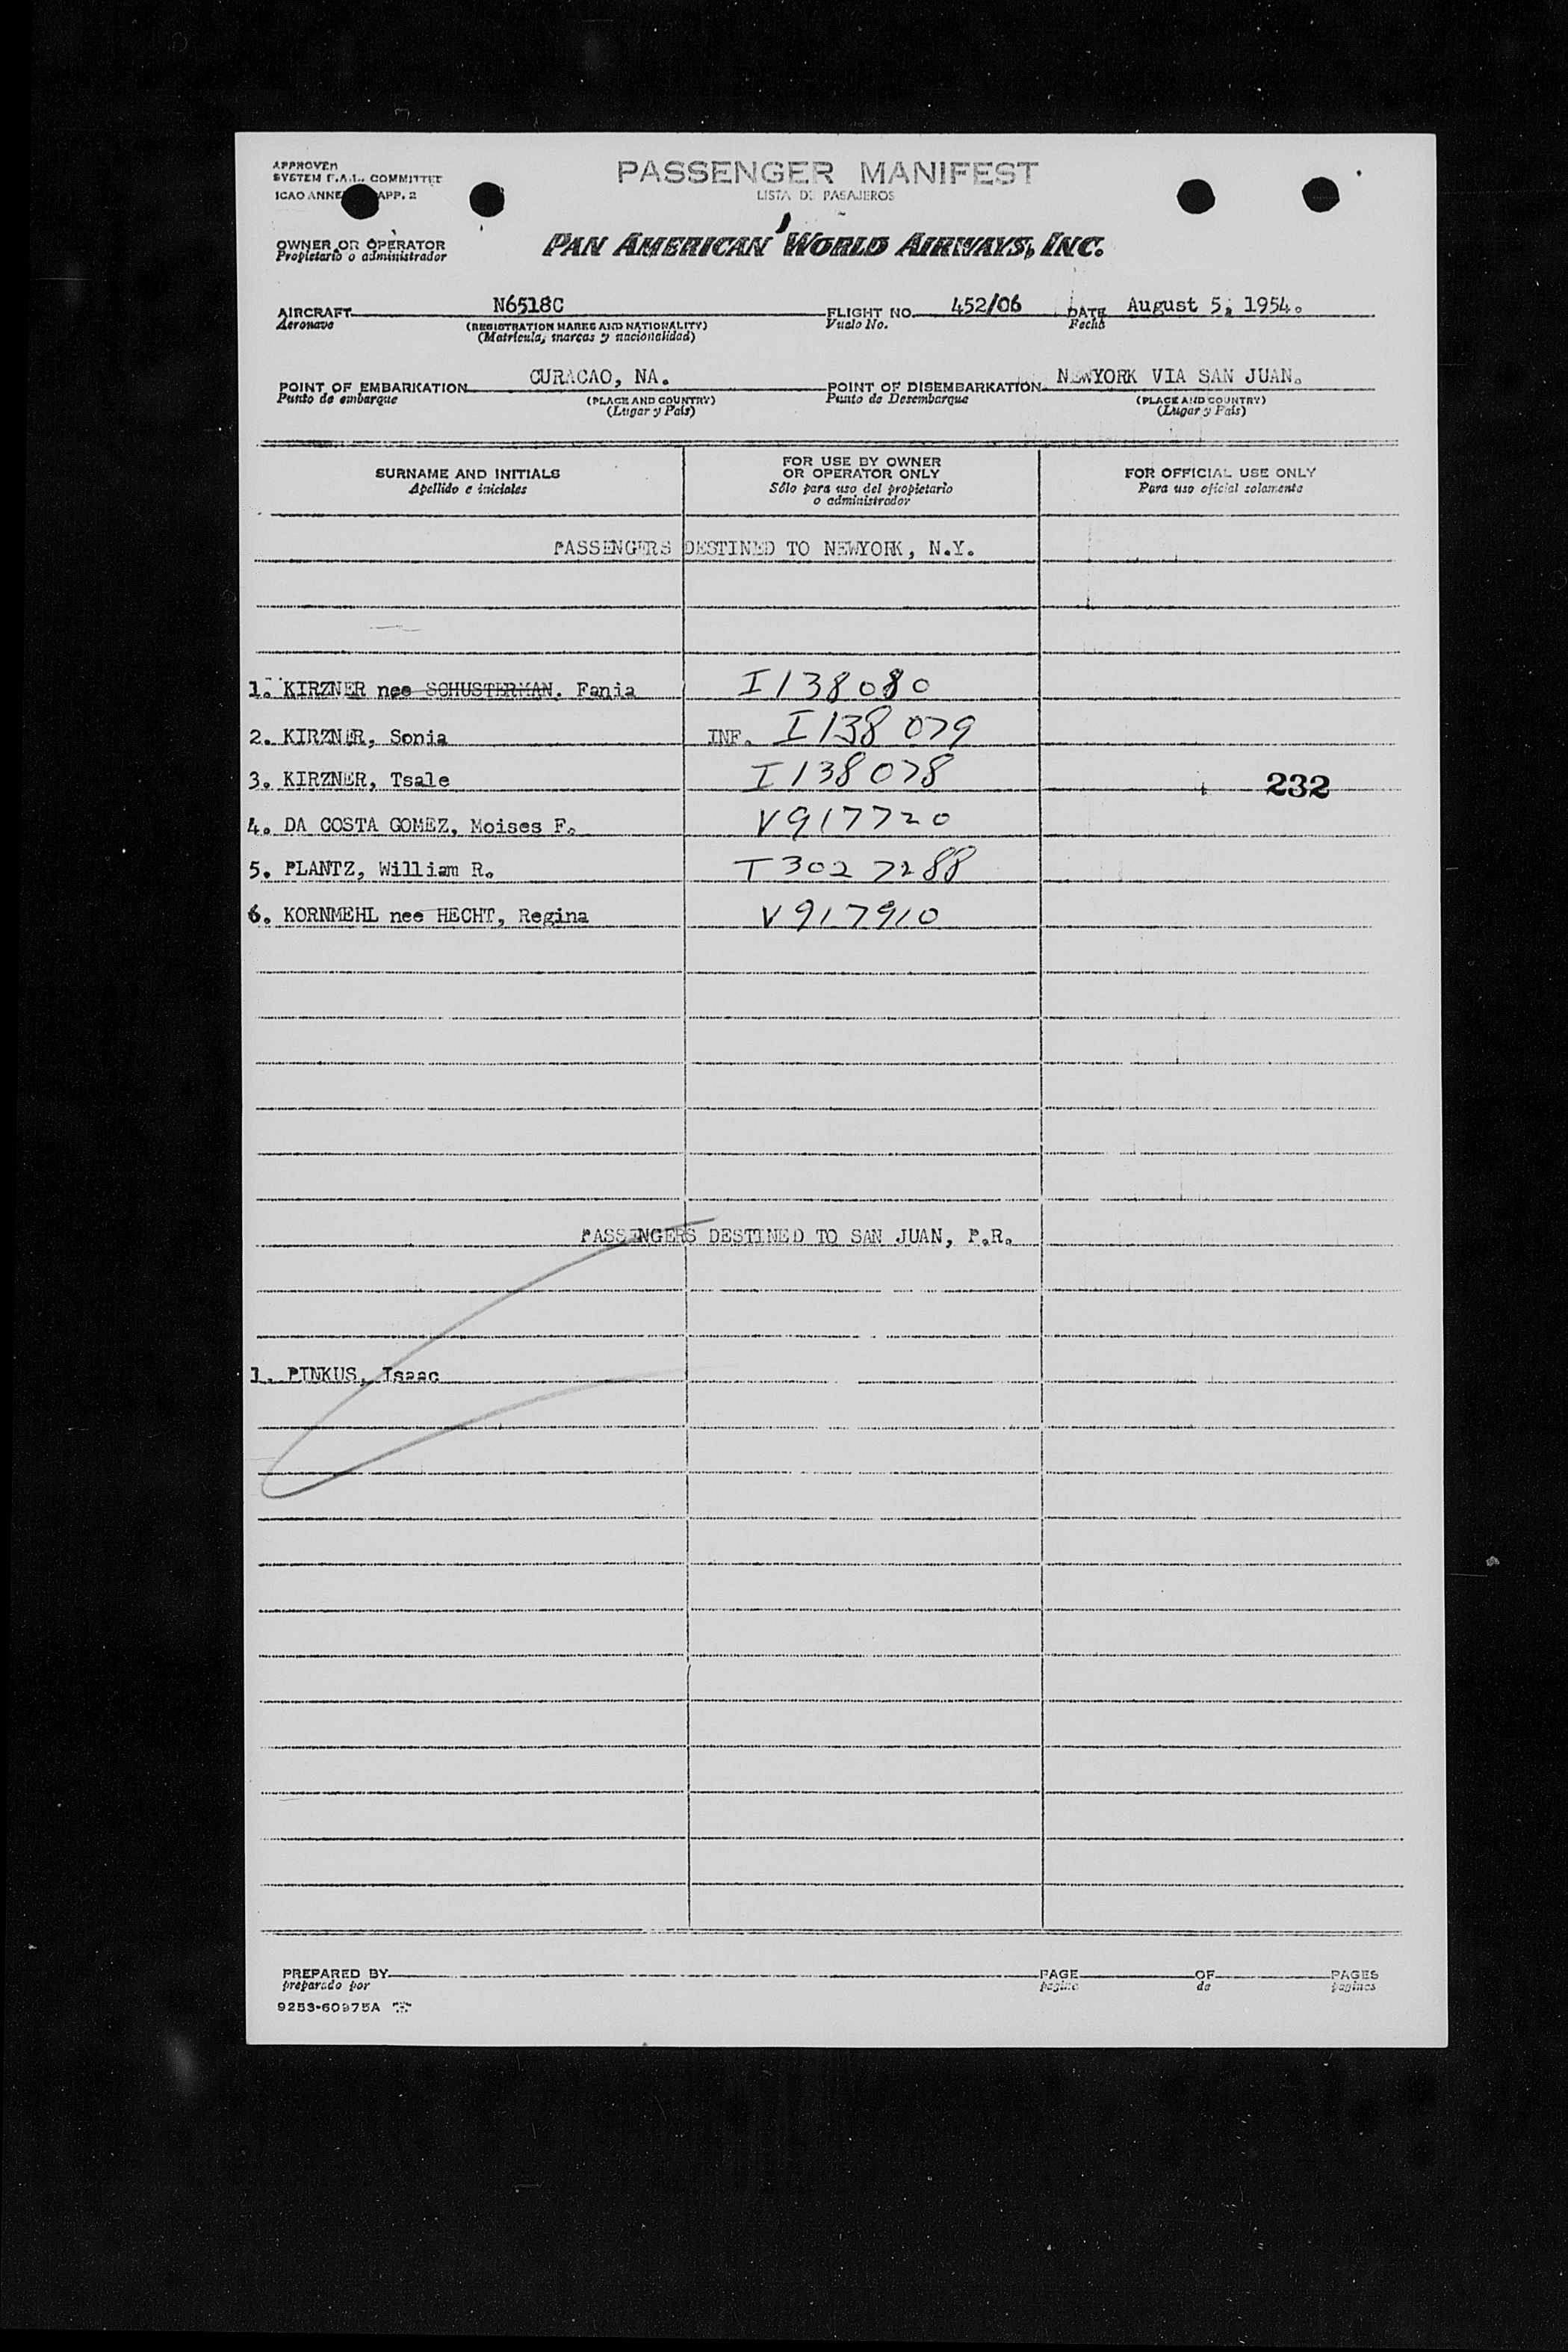 APPROVED
SYSTEM F.A.L. COMMITTEE
ICAO ANNE APP. 2
PASSENGER MANIFEST
LISTA DE PASAJEROS
OWNER OR OPERATOR
Propietario o administrador
PAN AMERICAN WORLD AIRWAYS, INC.
AIRCRAFT N6518C FLIGHT NO. 452/06 DATE August 5, 1954.
Aeronave (REGISTRATION MARKS AND NATIONALITY) Vuelo No. Fecha
(Matricula, marcas y nacionalidad)
POINT OF EMBARKATION CURACAO, NA. POINT OF DISEMBARKATION NEWYORK VIA SAN JUAN.
Punto de embarque (PLACE AND COUNTRY) Punto de Desembarque (PLACE AND COUNTRY)
(Lugar y País) (Lugar y País)
SURNAME AND INITIALS
Apellido e iniciales
FOR USE BY OWNER
OR OPERATOR ONLY
Sólo para uso del propietario
o administrador
FOR OFFICIAL USE ONLY
Para uso oficial solamente
PASSENGERS DESTINED TO NEWYORK, N.Y.
1. KIRZNER nee SCHUSTERMAN. Fania I138080
2. KIRZNER, Sonia INF. I138079
3. KIRZNER, Tsale I138078 232
4. DA COSTA GOMEZ, Moises F. V917720
5. PLANTZ, William R. T3027288
6. KORNMEHL nee HECHT, Regina V917910
PASSENGERS DESTINED TO SAN JUAN, P.R.
1. PINKUS, Isaac
PREPARED BY PAGE OF PAGES
preparado por pagina de paginas
9253-60975A